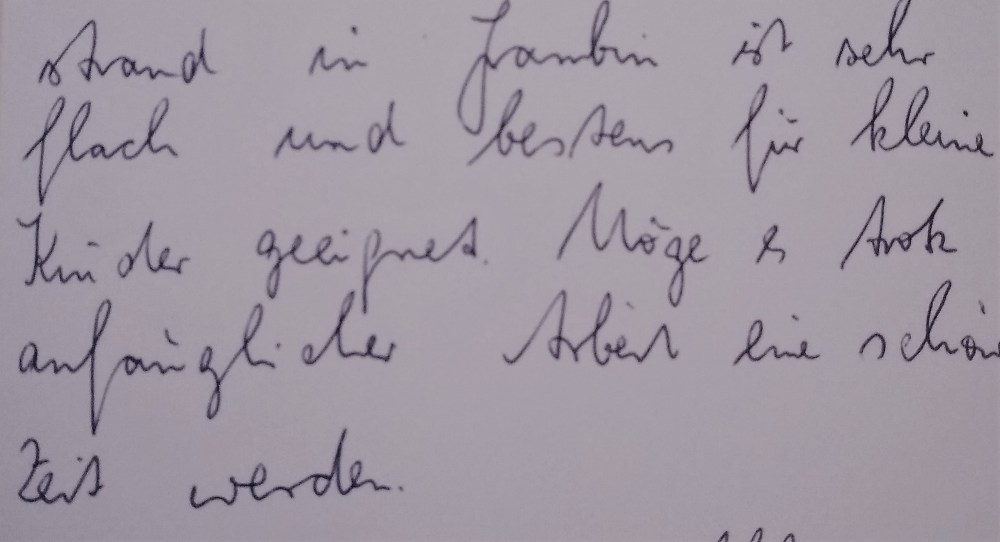 strand in Grambin ist sehr
flach und bestens für kleine
Kinder geeignet. Möge es trotz
anfänglicher Arbeit eine schöne
Zeit werden.